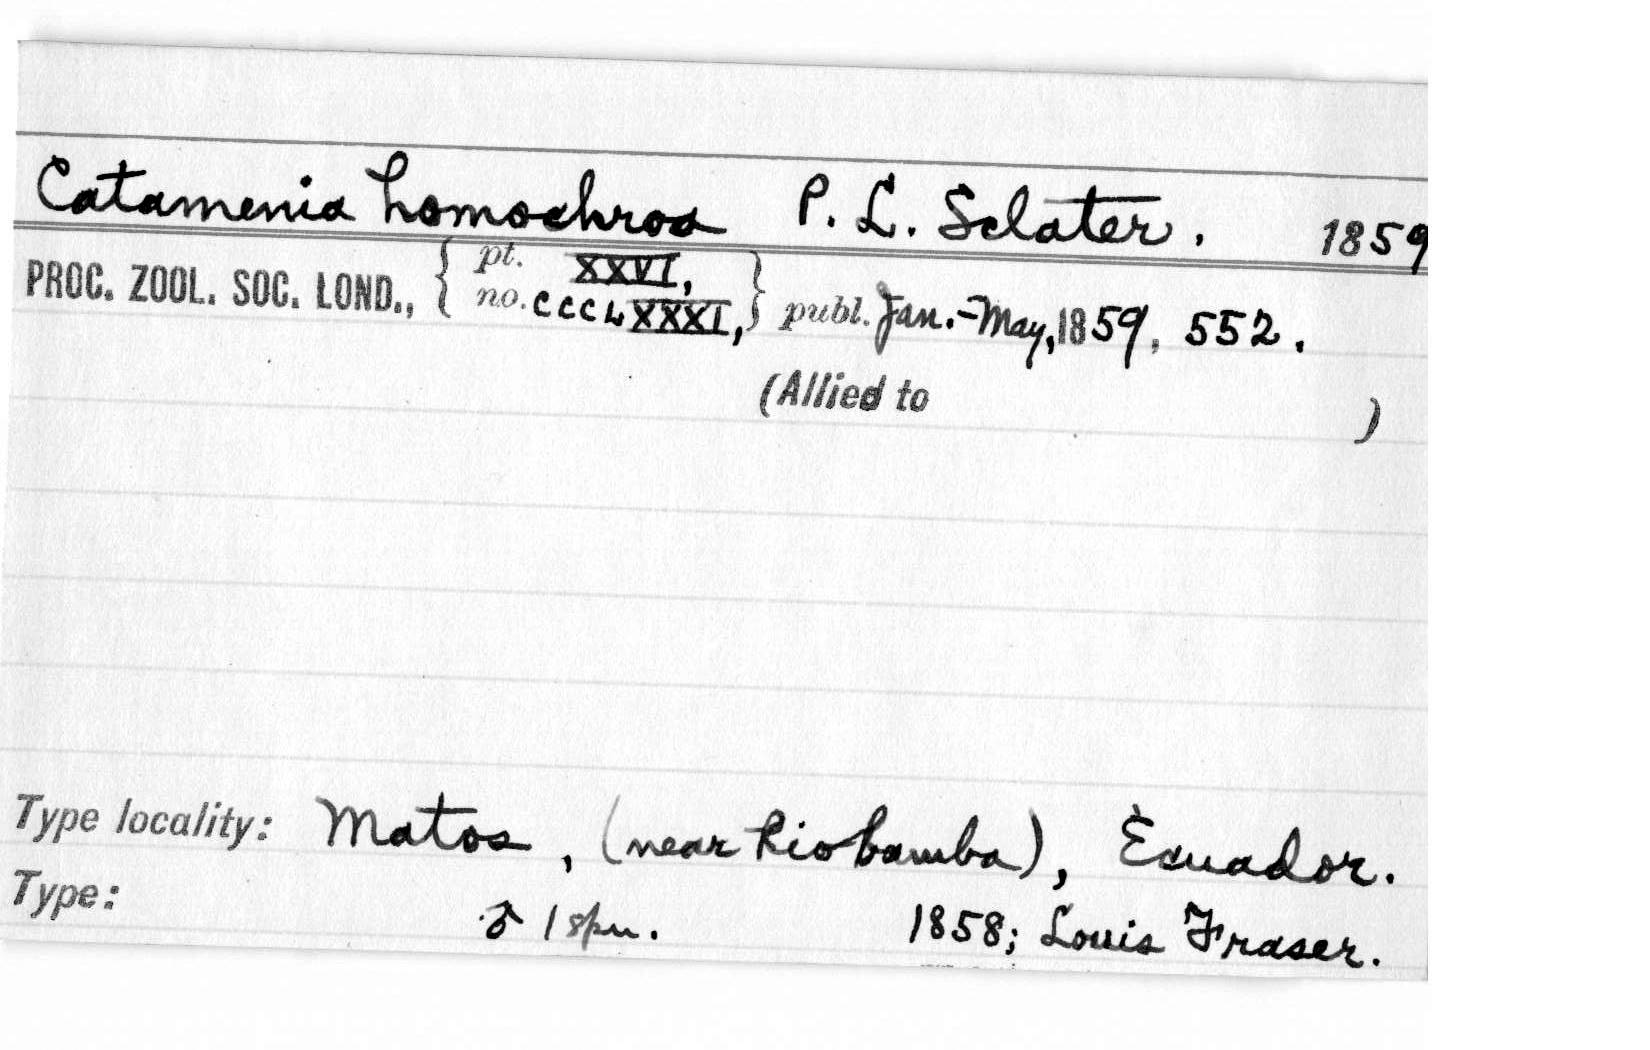 Catamenia homochroa P. L. Sclater. 1859
PROC. ZOOL. SOC. LOND., { pt. XXVI, no. CCCLXXXI, } publ. Jan.-May, 1859, 552.
(Allied to )
Type locality: Matos, (near Riobamba), Ecuador.
Type: ♂ 1 spm. 1858; Louis Fraser.